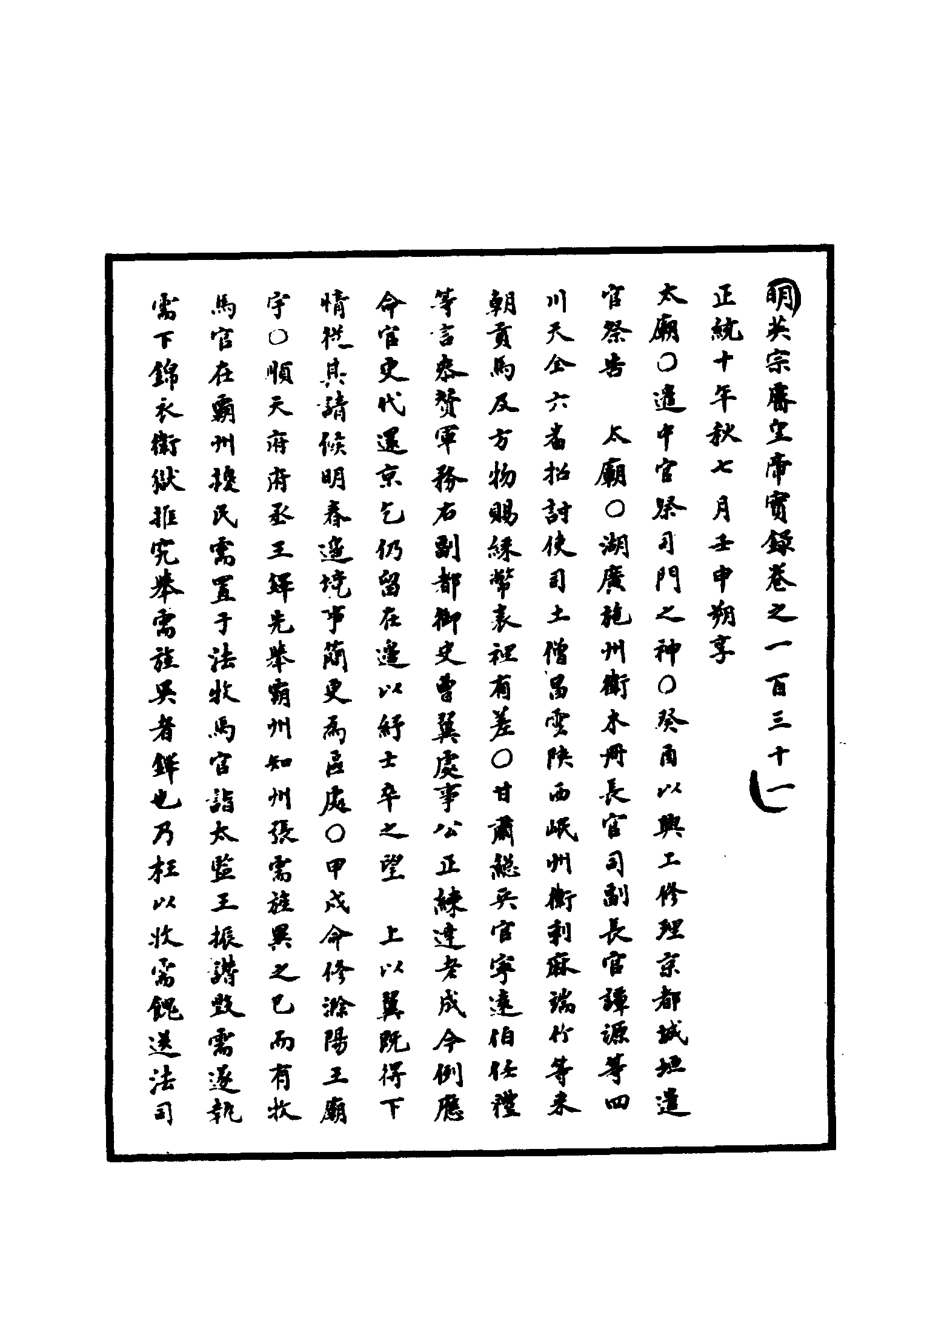 明英宗睿皇帝實録卷之一百三十一
正統十年秋七月壬申朔享
太廟〇遣中官祭司門之神〇癸酉以興工修理京都城垣遣
官祭告　太廟〇湖廣施州衛木冊長官司副長官譚源等四
川天全六番招討使司土僧昌雲陝西岷州衛剌麻端竹等来
朝貢馬及方物賜綵幣表裡有差〇甘肅總兵官寧遠伯任禮
等言叅贊軍務右副都御史曹翼處事公正練達老成今例應
命官更代還京乞仍留在邊以紓士卒之望　上以翼既得下
情從其請候明春邊境事簡更為區處〇甲戌命修滁陽王廟
宇〇順天府府丞王鐸先舉霸州知州張需旌異之已而有牧
馬官在霸州擾民需置于法牧馬官詣太監王振譖毀需遂執
需下錦衣衛獄推究舉需旌異者鐸也乃枉以收需餽送法司